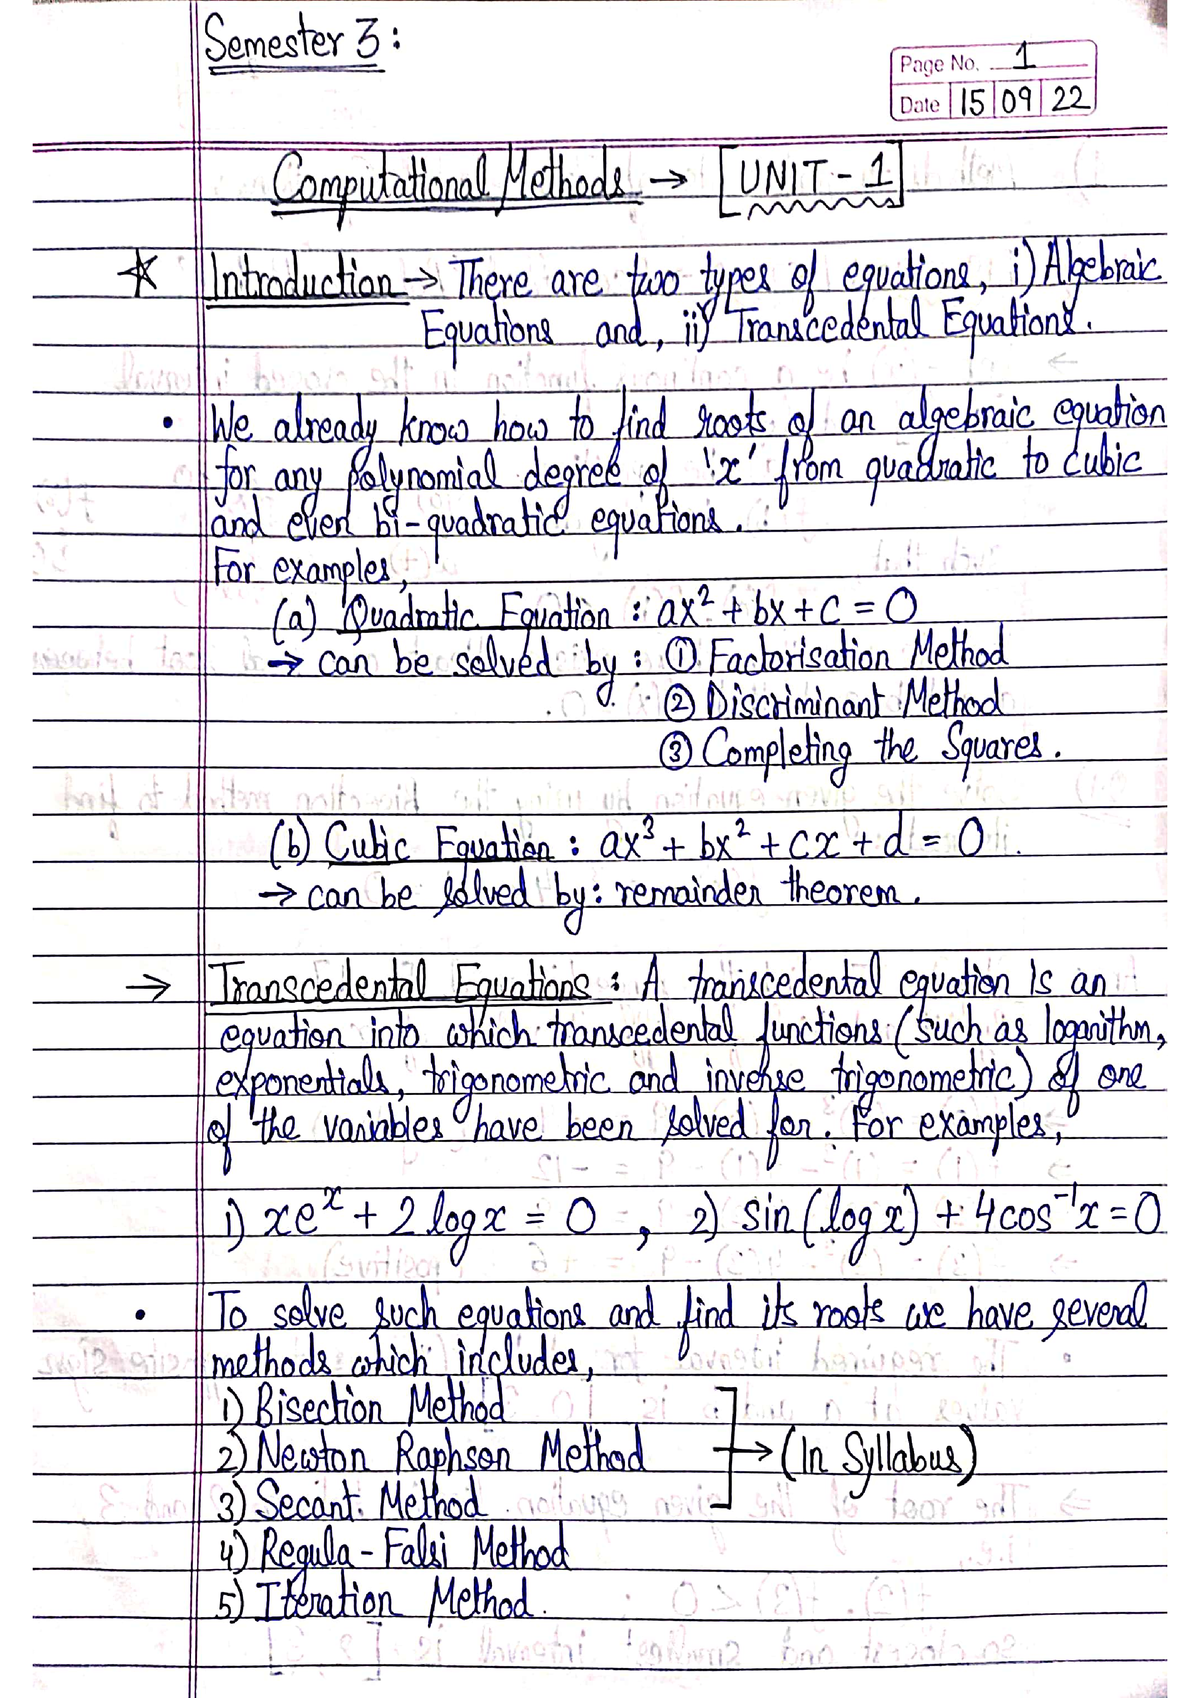 Semester 3:
Page No. 1
Date 15 09 22
Computational Methods → [UNIT - 1]
* Introduction → There are two types of equations, i) Algebraic
Equations and, ii) Transcedental Equations.
• We already know how to find roots of an algebraic equation
for any polynomial degree of 'x' from quadratic to cubic
and even bi-quadratic equations.
For examples,
(a) Quadratic Equation : ax² + bx + c = 0
→ can be solved by : ① Factorisation Method
② Discriminant Method
③ Completing the Squares.
(b) Cubic Equation : ax³ + bx² + cx + d = 0
→ can be solved by: remainder theorem.
→ Transcedental Equations : A transcedental equation is an
equation into which transcedental functions (such as logarithm,
exponentials, trigonometric and inverse trigonometric) of one
of the variables have been solved for. For examples,
i) xeˣ + 2 log x = 0 , 2) sin (log x) + 4cos⁻¹x = 0
• To solve such equations and find its roots we have several
methods which includes,
1) Bisection Method
2) Newton Raphson Method ] → (In Syllabus)
3) Secant Method
4) Regula - Falsi Method
5) Iteration Method.